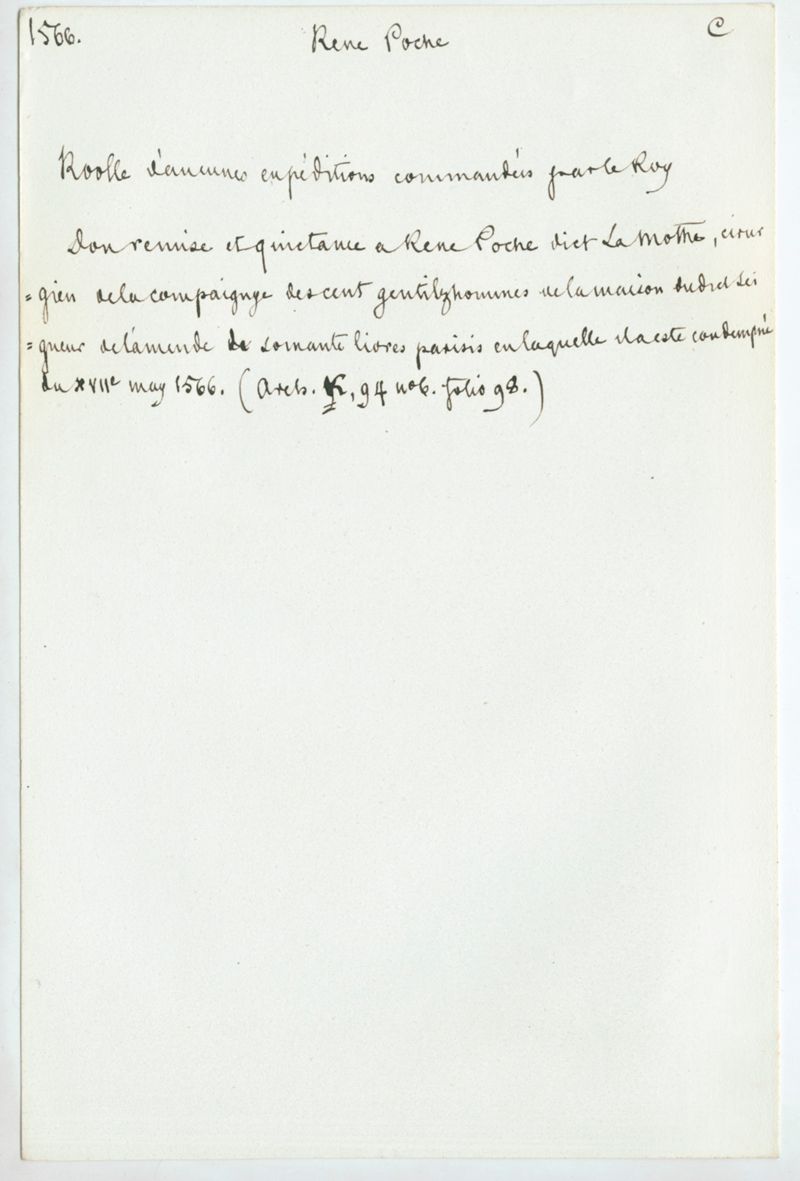 1566. Rene Poche C
Roolle d'aucunes expéditions commandées par le Roy
Don remise et quictance a Rene Poche dict La Mothe, cirur
= gien de la compaignye des cent gentilzhommes de la maison dudict Sei
= gneur de l'amende de soixante livres parisis en laquelle il a este condempné
du XVIIe may 1566. (Arch. K, 94 no 6. folio 98.)